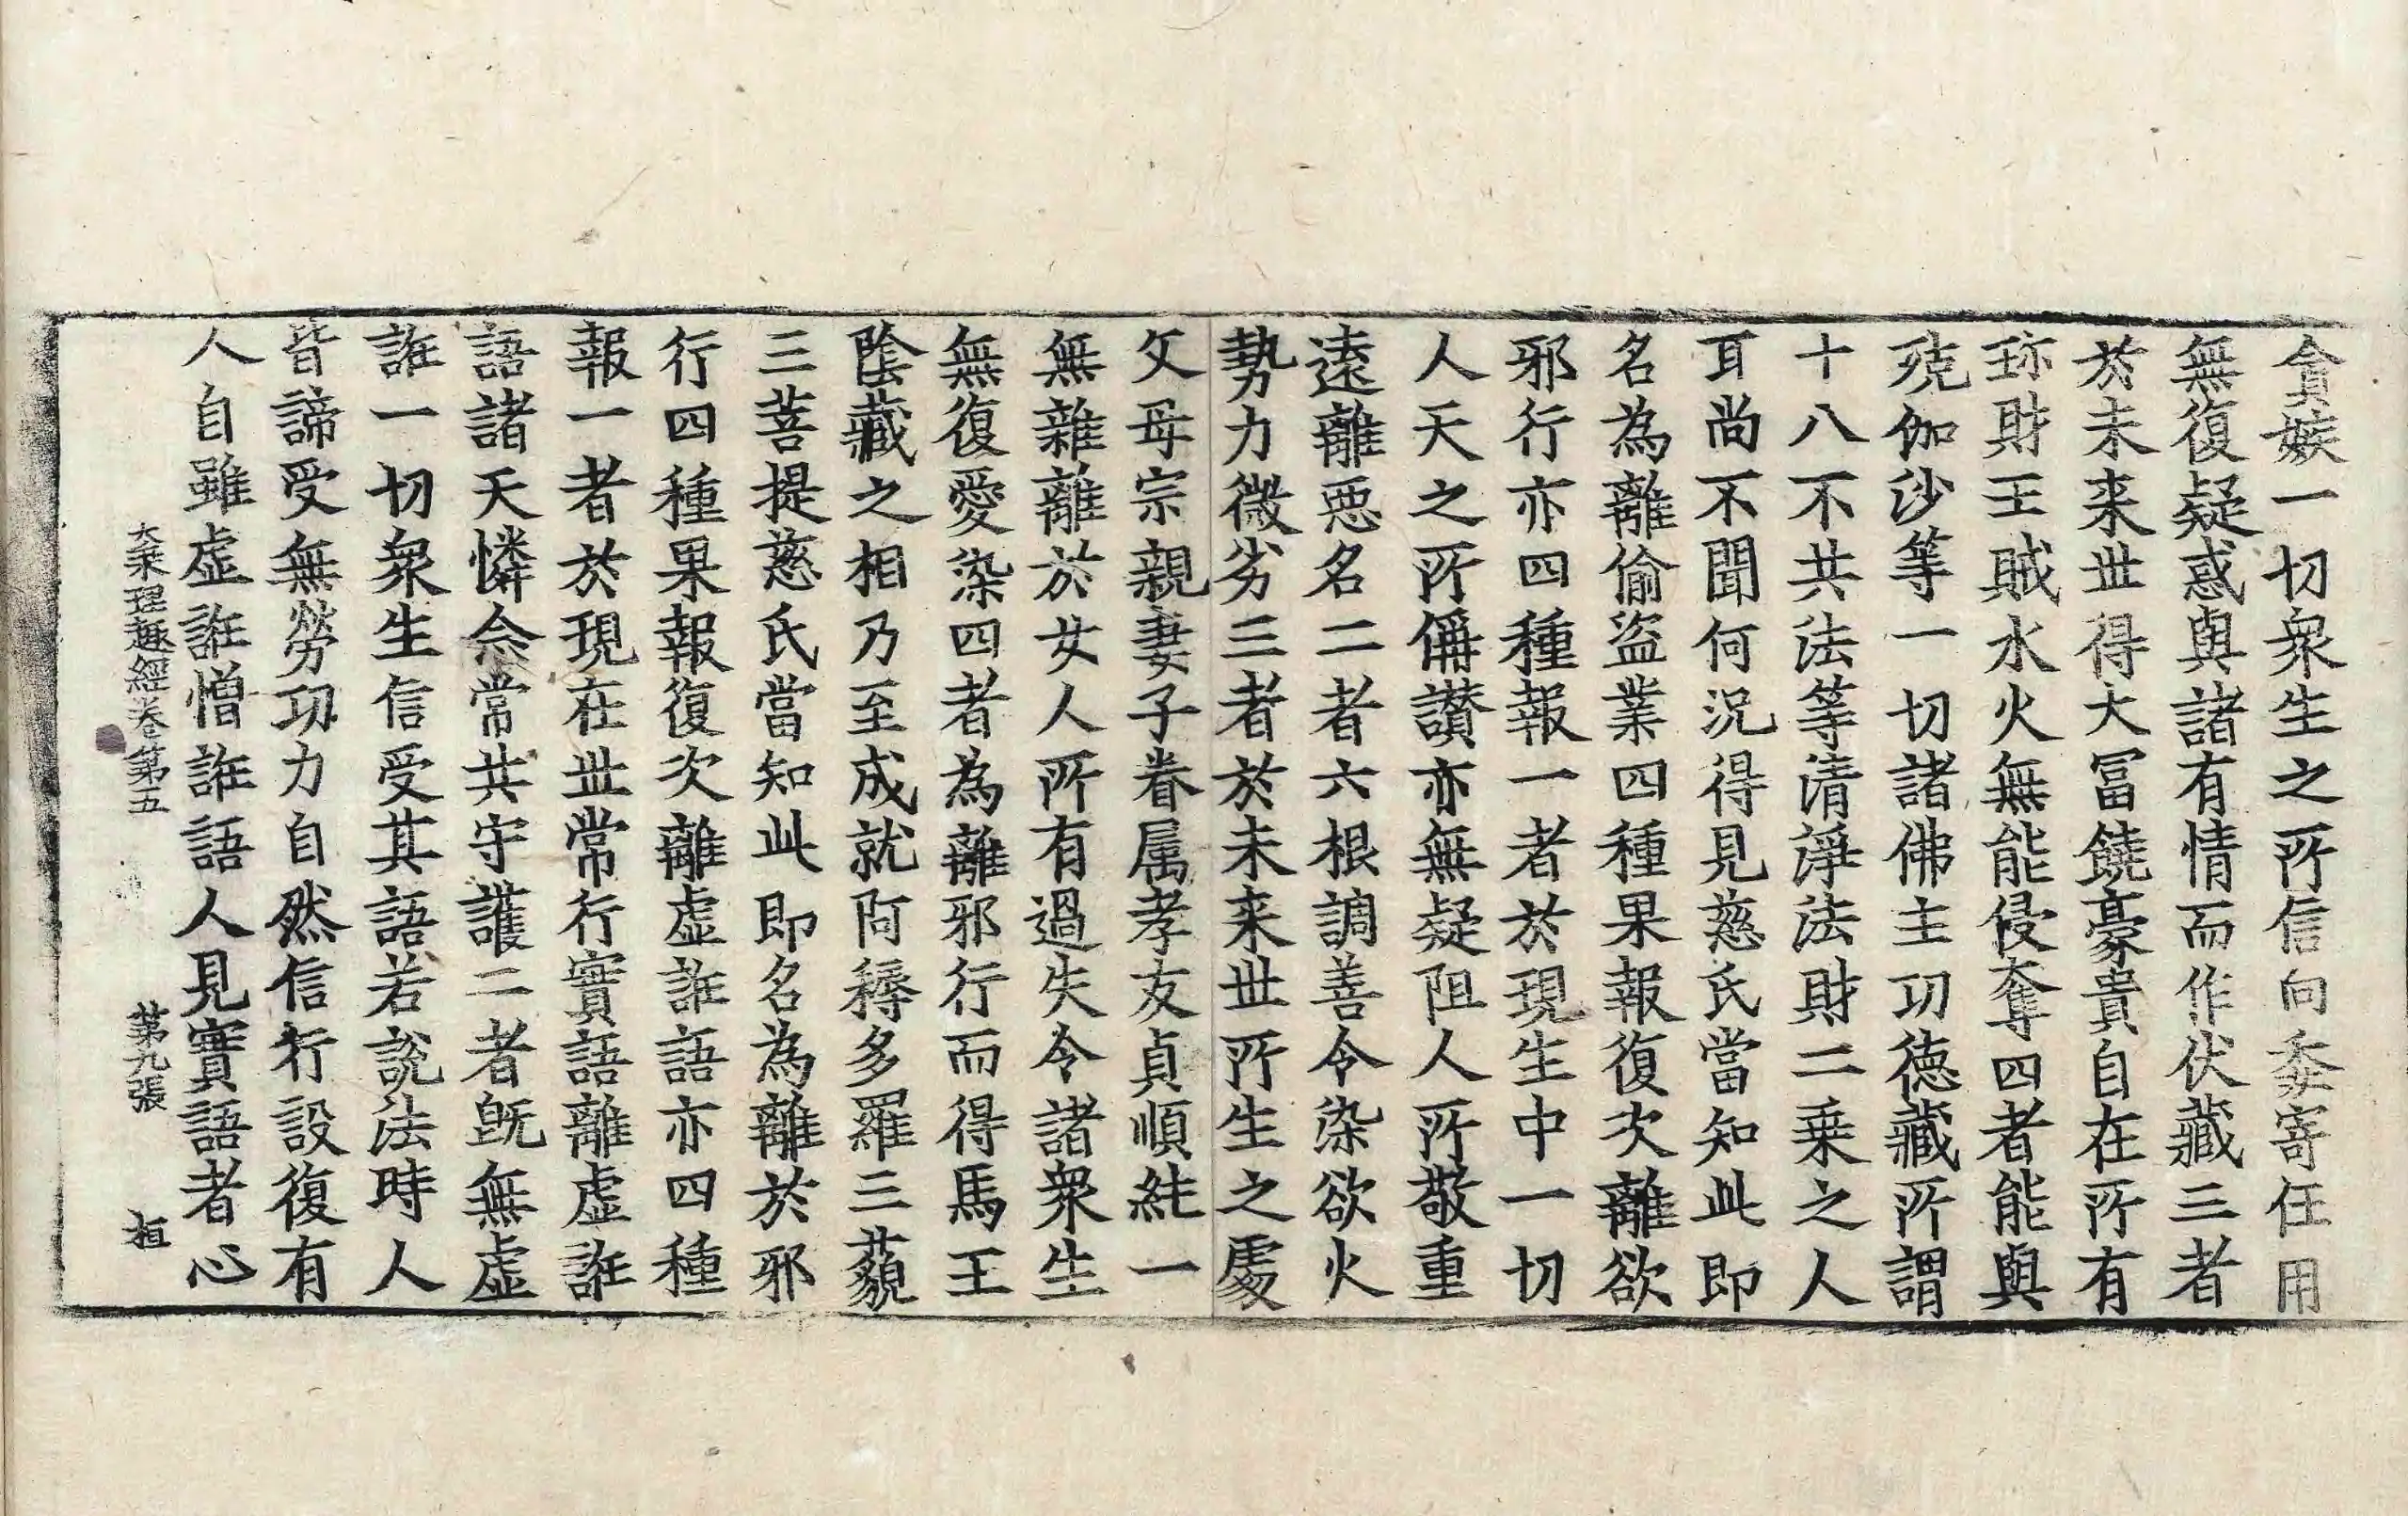 貪嫉一切衆生之所信向委寄任用
無復疑惑與諸有情而作伏藏三者
於未来世得大冨饒豪貴自在所有
珎財王賊水火無能侵奪四者能與
殑伽沙等一切諸佛主功德藏所謂
十八不共法等清淨法財二乗之人
耳尚不聞何況得見慈氏當知此即
名為離偷盜業四種果報復次離欲
邪行亦四種報一者於現生中一切
人天之所偁讃亦無疑阻人所敬重
遠離惡名二者六根調善令染欲火
勢力微劣三者於未来世所生之處
父母宗親妻子眷属孝友貞順純一
無雜離於女人所有過失令諸衆生
無復愛染四者為離邪行而得馬王
陰藏之相乃至成就阿耨多羅三藐
三菩提慈氏當知此即名為離於邪
行四種果報復次離虚誑語亦四種
報一者於現在世常行實語離虚誑
語諸天憐念常共守護二者旣無虚
誑一切衆生信受其語若說法時人
皆諦受無勞功力自然信行設復有
人自雖虚誑憎誑語人見實語者心
大乗理趣經卷第五 第九張 桓